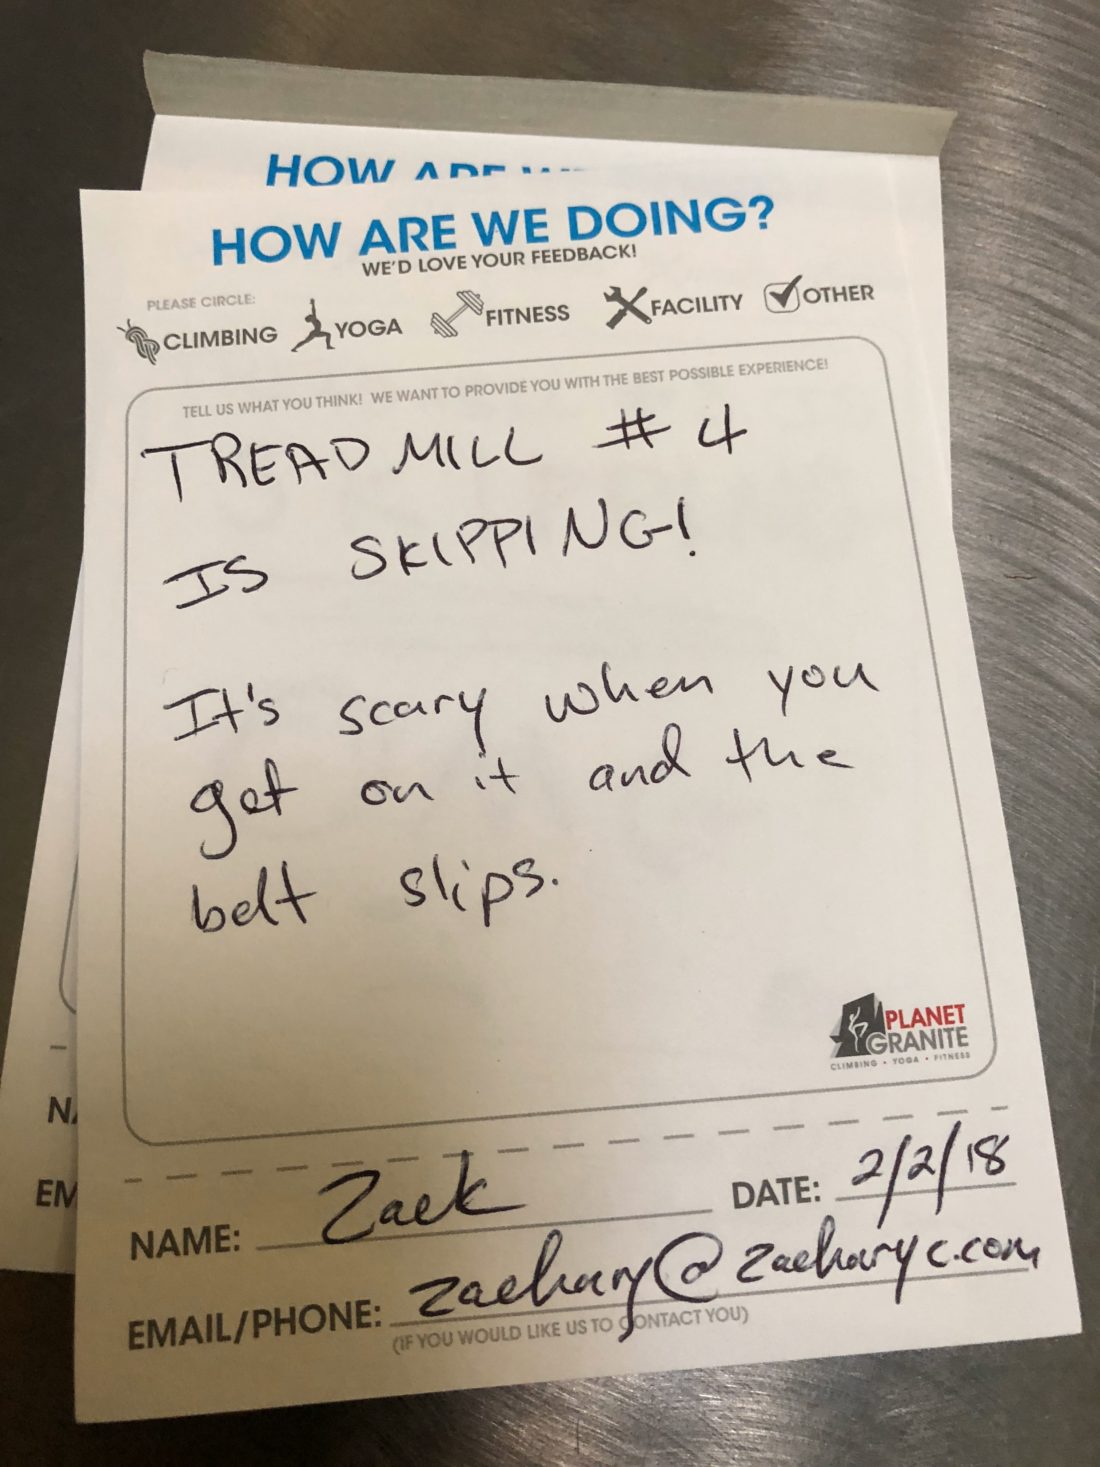 HOW ARE
HOW ARE WE DOING?
WE'D LOVE YOUR FEEDBACK!
PLEASE CIRCLE:
CLIMBING YOGA FITNESS FACILITY OTHER
TELL US WHAT YOU THINK! WE WANT TO PROVIDE YOU WITH THE BEST POSSIBLE EXPERIENCE!
TREADMILL #4
IS SKIPPING!
It's scary when you
get on it and the
belt slips.
PLANET
GRANITE
CLIMBING • YOGA • FITNESS
NAME: Zack DATE: 2/2/18
EMAIL/PHONE: zachary@zacharyc.com
(IF YOU WOULD LIKE US TO CONTACT YOU)